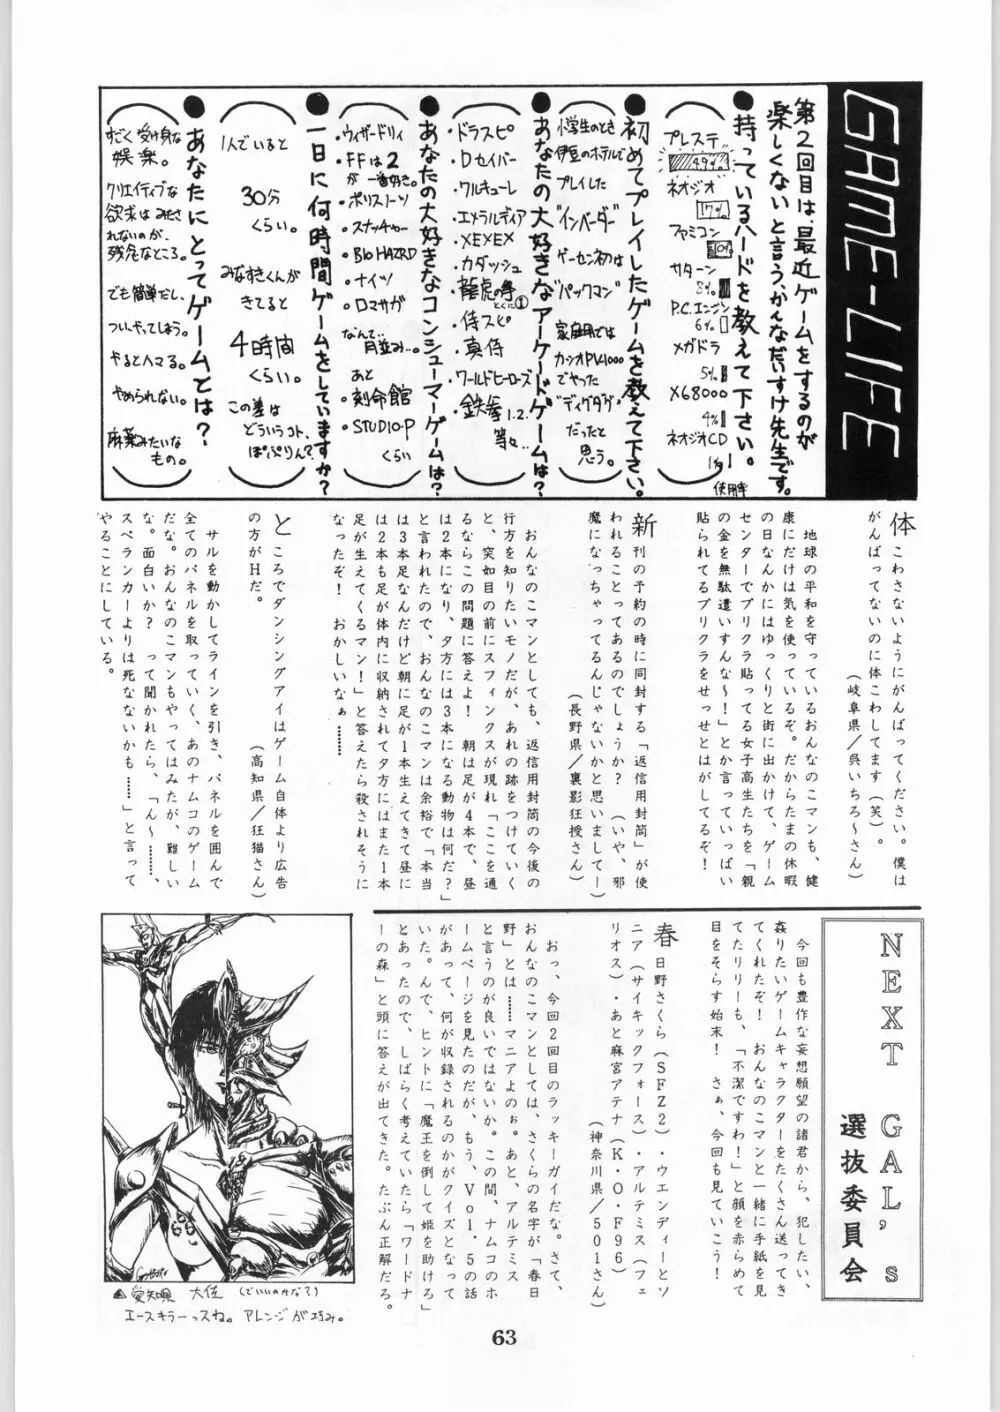 GAME-LIFE
第2回目は、最近ゲームをするのが
楽しくないと言うかんなだいすけ先生です。
●持っているハードを教えて下さい。
プレステ
49%
ネオジオ
17%
ファミコン
10%
サターン
8%
P.C.エンジン
6%
メガドラ
5%
X68000
4%
ネオジオCD
1%
使用率
●初めてプレイしたゲームを教えて下さい。
小学生のとき
伊豆のホテルで
プレイした
"インベーダー"
ゲーセン初は
"パックマン"
家庭用では
カシオPV-1000
でやった
"ディグダグ"
だったと
思う。
●あなたの大好きなアーケードゲームは?
・ドラスピ
・Dセイバー
・ワルキューレ
・エメラルディア
・XEXEX
・カダッシュ
・龍虎の拳
とくに①
・侍スピ
・真侍
・ワールドヒーローズ
・鉄拳1.2.
等々…
●あなたの大好きなコンシューマーゲームは?
・ウィザードリィ
・FFは2
が一番好き。
・ポリスノーツ
・スナッチャー
・BIO HAZRD
・ナイツ
・ロマサガ
なんて、
月並み…。
あと
・刻命館
・STUDIO-P
くらい
●一日に何時間ゲームをしていますか?
1人でいると
30分
くらい。
みなすきくんが
きてると
4時間
くらい。
この差は
どういうコト、
ぽぷりん?
●あなたにとってゲームとは?
すごく受け身な
娯楽。
クリエイティブな
欲求はみたさ
れないのが、
残念なところ。
でも簡単だし、
ついやってしまう。
やるとハマる。
やめられない。
麻薬みたいな
もの。
体こわさないようにがんばってください。僕は
がんばってないのに体こわしてます(笑)。
(岐阜県/呉いちろ〜さん)
地球の平和を守っているおんなのこマンも、健
康にだけは気を使っているぞ。だからたまの休暇
の日なんかにはゆっくりと街に出かけて、ゲーム
センターでプリクラ貼ってる女子高生たちを「親
の金を無駄遣いすんな〜!」とか言っていっぱい
貼られてるプリクラをせっせとはがしてるぞ!
新刊の予約の時に同封する「返信用封筒」が使
われることってあるのでしょうか?(いや、邪
魔になっちゃってるんじゃないかと思いまして!)
(長野県/裏影狂授さん)
おんなのこマンとしても、返信用封筒の今後の
行方を知りたいモノだが、あれの跡をつけていく
と、突如目の前にスフィンクスが現れ「ここを通
るならこの問題に答えよ! 朝は足が4本で、昼
は2本になり、夕方には3本になる動物は何だ?」
と言われたので、おんなのこマンは余裕で「本当
は3本足なんだけど朝に足が1本生えてきて昼に
は2本も足が体内に収納されて夕方にはまた1本
足が生えてくるマン!」と答えたら殺されそうに
なったぞ! おかしいなぁ………
ところでダンシングアイはゲーム自体より広告
の方がHだ。
(高知県/狂猫さん)
サルを動かしてラインを引き、パネルを囲んで
全てのパネルを取っていく、あのナムコのゲーム
だな。おんなのこマンもやってはみたが、難しい
な。面白いか? って聞かれたら、「ん〜………、
スペランカーよりは死なないかも……」と言って
やることにしている。
NEXT GAL's
選抜委員会
今回も豊作な妄想願望の諸君から、犯したい、
姦りたいゲームキャラクターをたくさん送ってき
てくれたぞ! おんなのこマンと一緒に手紙を見
てたリリーも、「不潔ですわ!」と顔を赤らめて
目をそらす始末! さぁ、今回も見ていこう!
春日野さくら(SFZ2)・ウエンディーとソ
ニア(サイキックフォース)・アルテミス(フェ
リオス)・あと麻宮アテナ(K・O・F96)
(神奈川県/501さん)
おっ、今回2回目のラッキーガイだな。さて、
おんなのこマンとしては、さくらの名字が「春日
野」とは……マニアよのぉ。あと、アルテミス
と言うのが良いではないか。この間、ナムコのホ
ームページを見たのだが、もう、Vol.5の話
があって、何が収録されるのかがクイズとなって
いた。んで、ヒントに「魔王を倒して姫を助ける」
とあったので、しばらく考えていたら「ワードナ
ーの森」と頭に答えが出てきた。たぶん正解だろ。
▲愛知県 大佐 (でいいのかな?)
エースキラーっスね。アレンジが巧み。
63